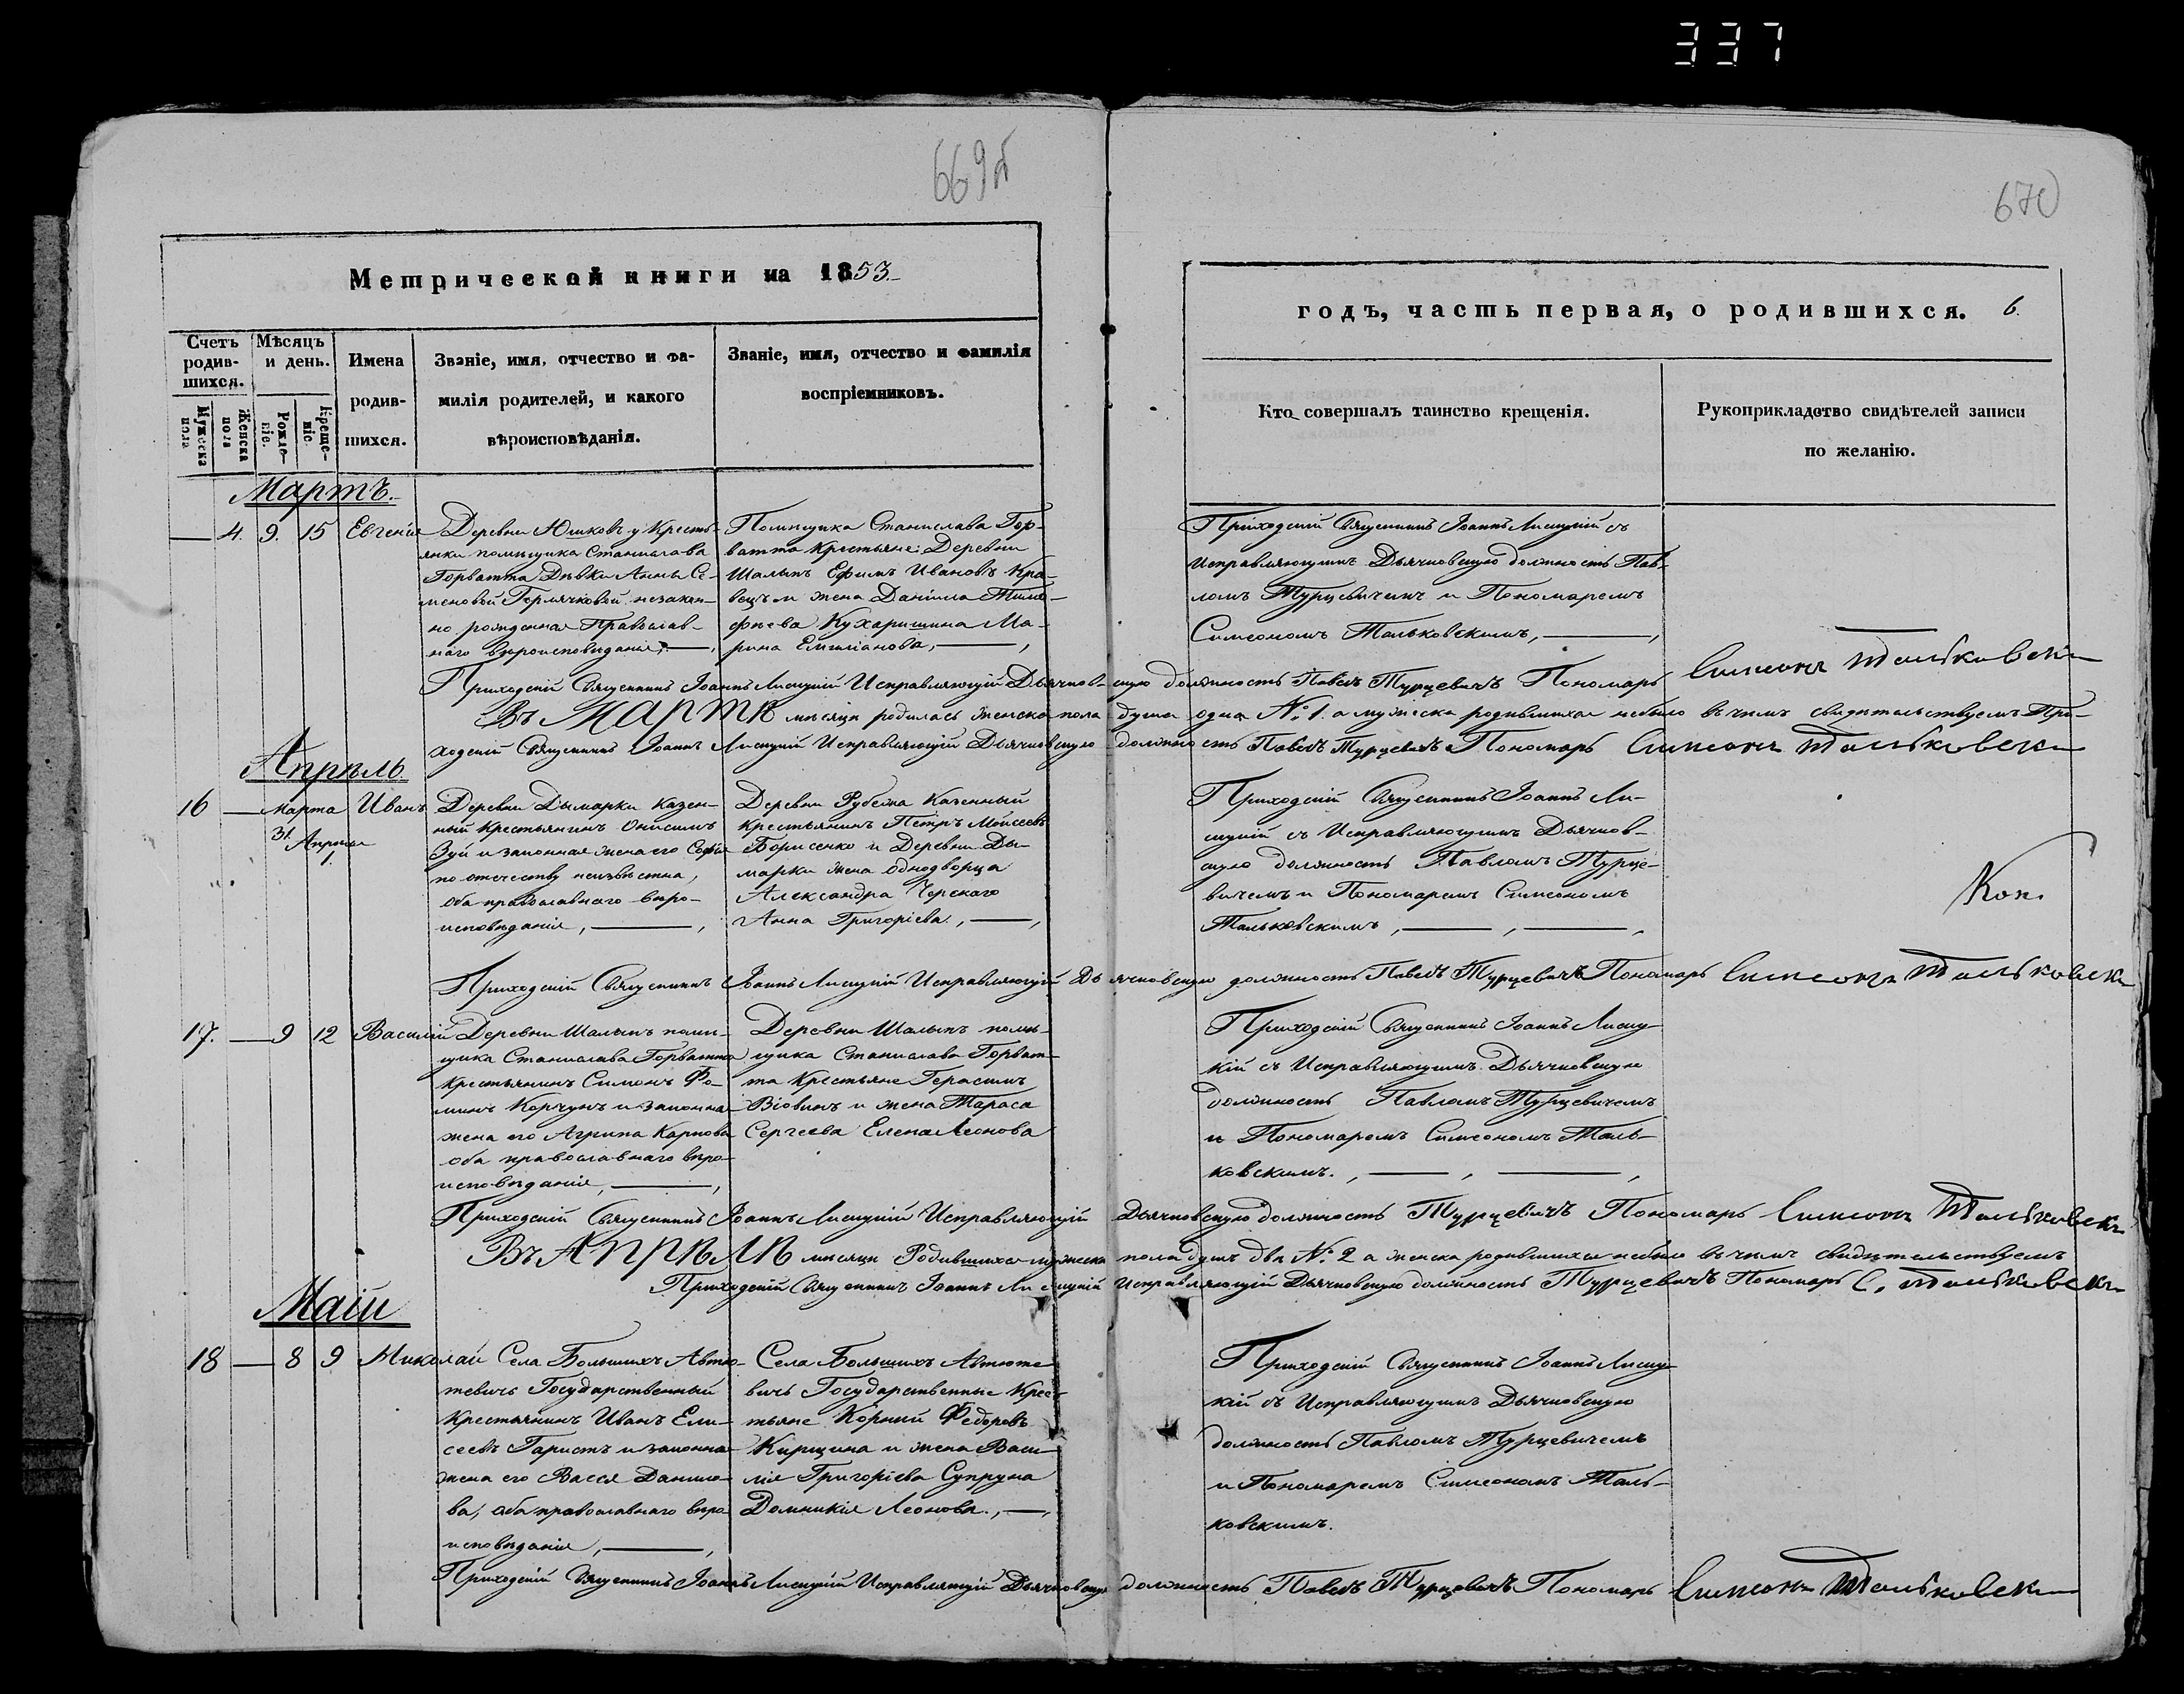 337
669б
670
Метрической книги на 1853.
годъ, часть первая, о родившихся. 6.
Счетъ родившихся.
Мужеска пола
Женска пола
Мѣсяцъ и день.
Рожденіе.
Крещеніе.
Имена
родив-
шихся.
Званіе, имя, отчество и фа-
милія родителей, и какого
вѣроисповѣданія.
Званіе, имя, отчество и фамилія
воспріемниковъ.
Кто совершалъ таинство крещенія.
Рукоприкладство свидѣтелей записи
по желанію.
Мартъ.
4. 9. 15 Евгенія
Деревни Юшковъ у Кресть-
янки помѣщика Станислава
Горватта Дѣвки Анны Се-
меновой незакон-
но рожденная Православ-
наго вѣроисповѣданія,
Помѣщика Станислава Гор-
ватта Крестьяне: Деревни
Шалыпъ Ефимъ Ивановъ Кра-
вецъ и жена Даніила Тимо-
фѣева Кухаришина Ма-
рина Емиліанова,
Приходскій Священникъ Іоаннъ Лисицкій съ
Исправляющимъ Дьячковскую должность Пав-
ломъ Турцевичемъ и Пономаремъ
Симеономъ Тальковскимъ,
Приходскій Священникъ Іоаннъ Лисицкій Исправляющій Дьячковскую должность Павелъ Турцевичъ Пономарь Симеонъ Тальковски
Въ Мартѣ мѣсяцѣ родилась женска пола душа одна №. 1. а мужеска родившихся небыло въ чемъ свидѣтельствуемъ При-
ходскій Священникъ Іоаннъ Лисицкій Исправляющій Дьячковскую должность Павелъ Турцевичъ Пономарь Симеонъ Тальковски
Апрѣль
16 Марта 31. Апрѣля 1. Иванъ
Деревни Дымарки Казен-
ный Крестьянинъ Онисимъ
Зуй и законная жена его Софія
по отечеству неизвѣстна,
оба православнаго вѣро-
исповѣданія,
Деревни Рубежа Казенный
Крестьянинъ Петръ Моисеевъ
Борисенко и Деревни Ды-
марки жена Однодворца
Александра Черскаго
Анна Григоріева,
Приходскій Священникъ Іоаннъ Ли-
сицкій съ Исправляющимъ Дьячков-
скую должность Павломъ Турце-
вичемъ и Пономаремъ Симеономъ
Тальковскимъ,
Коп.
Приходскій Священникъ Іоаннъ Лисицкій Исправляющій Дьячковскую должность Павелъ Турцевичъ Пономарь Симеонъ Тальковски
17. 9 12 Василій
Деревни Шалыпъ помѣ-
щика Станислава Горватта
Крестьянинъ Симонъ Фо-
минъ Корчунъ и законна
жена его Агрипа Карпова
оба православнаго вѣро-
исповѣданія,
Деревни Шалыпъ помѣ-
щика Станислава Горват-
та Крестьяне Герасимъ
и жена Тараса
Сергеева Елена Леонова
Приходскій Священникъ Іоаннъ Лисиц-
кій съ Исправляющимъ Дьячковскую
должность Павломъ Турцевичемъ
и Пономаремъ Симеономъ Таль-
ковскимъ.,
Приходскій Священникъ Іоаннъ Лисицкій Исправляющій Дьячковскую должность Турцевичъ Пономарь Симеонъ Тальковски
Въ Апрѣлѣ мѣсяцѣ Родившихся мужеска пола душъ двѣ №. 2 а женска родившихся небыло въ чемъ свидѣтельствуемъ
Приходскій Священникъ Іоаннъ Лисицкій Исправляющій Дьячковскую должность Турцевичъ Пономарь С. Тальковски
Маіи
18 8 9 Николай
Села Большихъ Автю-
тевичъ Государственный
Крестьянинъ Иванъ Ели-
сеевъ Гаристъ и законна
жена его Васса Данило-
ва, оба православнаго вѣро
исповѣданія,
Села Большихъ Автюте-
вичъ Государственные Крес-
тьяне Корній Федоровъ
Кирщина и жена Васи-
лія Григоріева Супруна
Домникія Леонова.,
Приходскій Священникъ Іоаннъ Лисиц-
кій съ Исправляющимъ Дьячковскую
должность Павломъ Турцевичемъ
и Пономаремъ Симеономъ Таль-
ковскимъ.
Приходскій Священникъ Іоаннъ Лисицкій Исправляющій Дьячковскую должность Павелъ Турцевичъ Пономарь Симеонъ Тальковски